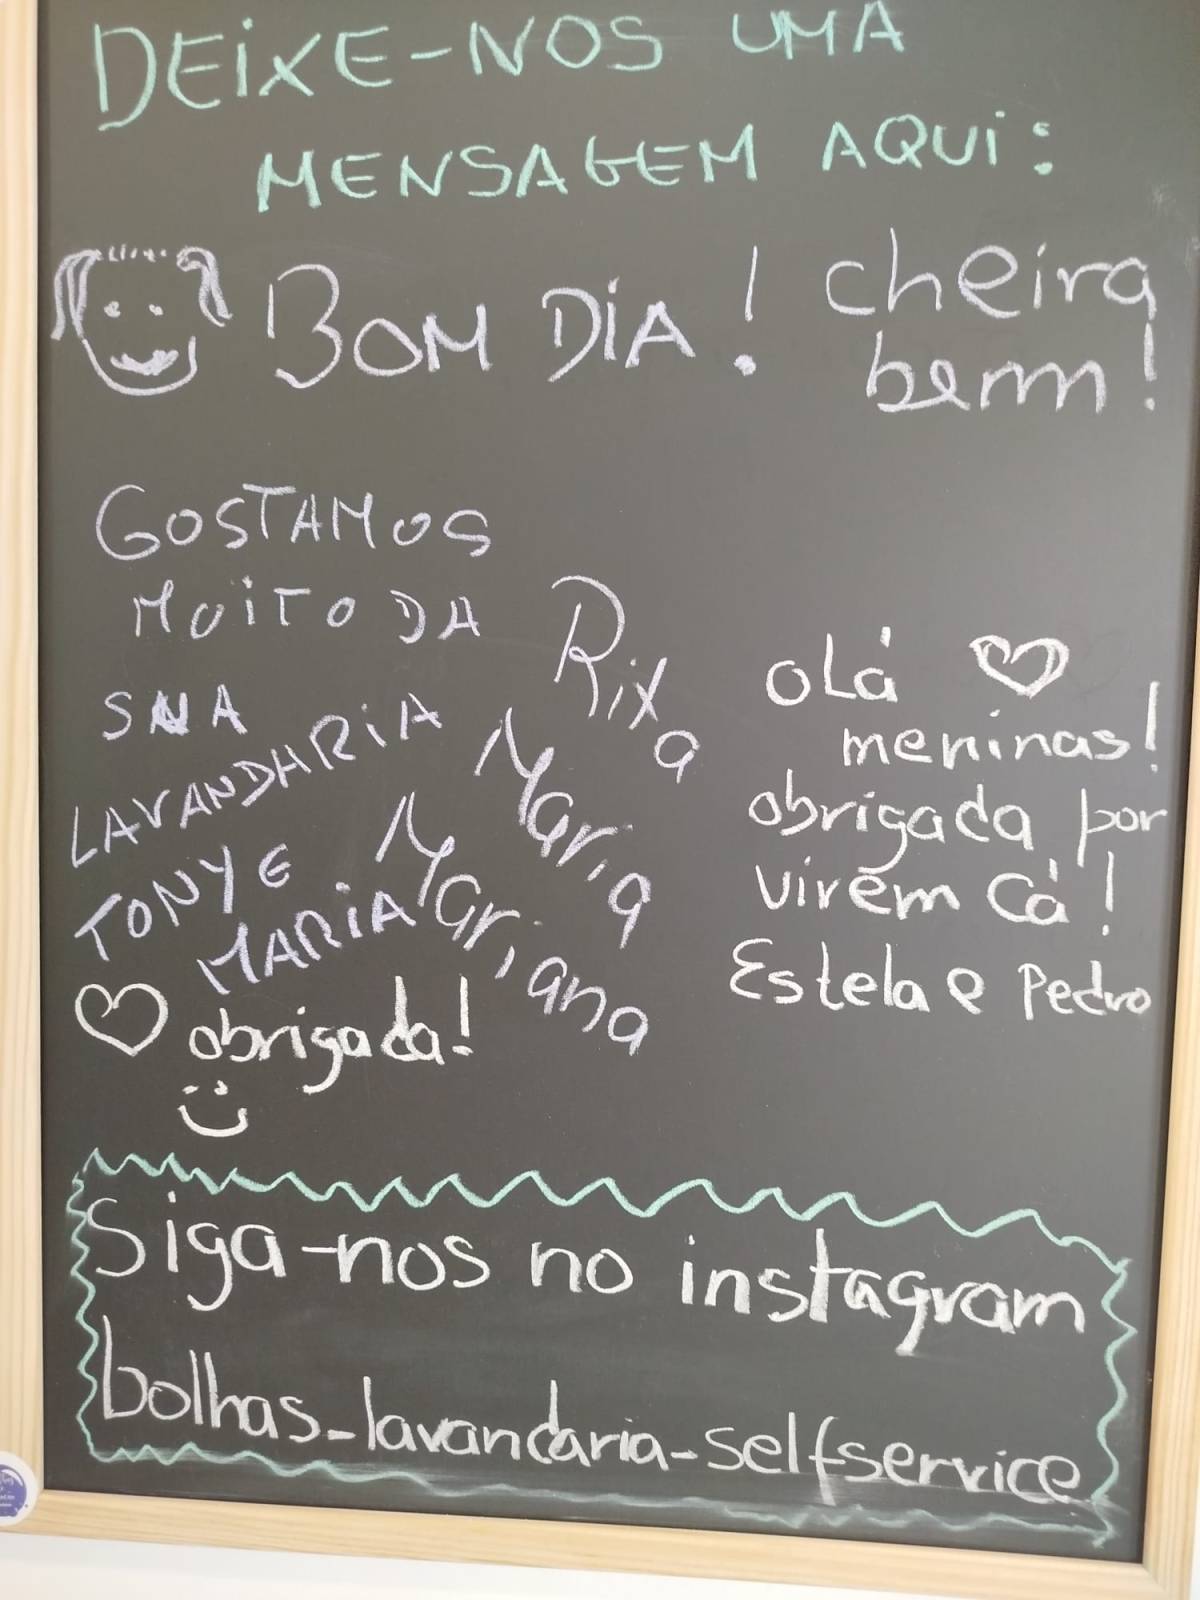 DEIXE-NOS UMA
MENSAGEM AQUI:
BOM DIA!
cheira
bem!
GOSTAMOS
MUITO DA
SUA
LAVANDARIA
TONY E
MARIA
obrigada!
Rita
Maria
Mariana
OLá
meninas!
obrigada por
virem Cá!
Estela e Pedro
Siga-nos no instagram
bolhas_lavandaria_selfservice